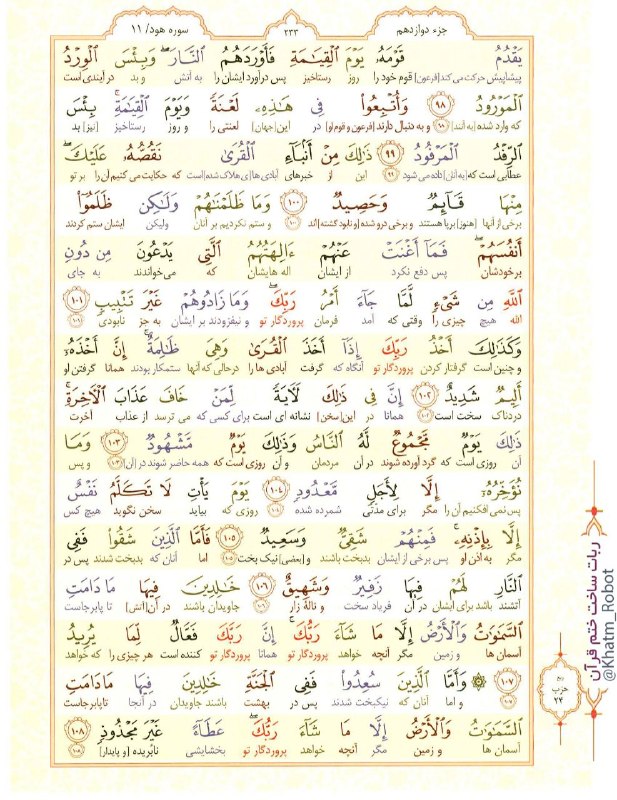 جزء دوازدهم
۲۳۳
سوره هود/ ۱۱
يَقْدُمُ قَوْمَهُۥ يَوْمَ ٱلْقِيَٰمَةِ فَأَوْرَدَهُمُ ٱلنَّارَ ۖ وَبِئْسَ ٱلْوِرْدُ
پیشاپیش حرکت می کند [فرعون] قوم خود را روز رستاخیز پس درآورد ایشان را به آتش و بد در آیندی است
ٱلْمَوْرُودُ ۹۸ وَأُتْبِعُوا۟ فِى هَٰذِهِۦ لَعْنَةً وَيَوْمَ ٱلْقِيَٰمَةِ ۚ بِئْسَ
که وارد شده [به آنند] ۹۸ و به دنبال دارند [فرعون و قوم او] در این [جهان] لعنتی را و روز رستاخیز [نیز] بد
ٱلرِّفْدُ ٱلْمَرْفُودُ ۹۹ ذَٰلِكَ مِنْ أَنۢبَآءِ ٱلْقُرَىٰ نَقُصُّهُۥ عَلَيْكَ ۖ
عطایی است که [به آنان] داده می شود ۹۹ این از خبرهای آبادی ها [ی هلاک شده] است که حکایت می کنیم آن را بر تو
مِنْهَا قَآئِمٌ وَحَصِيدٌ ۱۰۰ وَمَا ظَلَمْنَٰهُمْ وَلَٰكِن ظَلَمُوٓا۟
برخی از آنها [هنوز] برپا هستند و برخی درو شده [و نابود گشته] اند ۱۰۰ و ستم نکردیم بر آنان ولیکن ایشان ستم کردند
أَنفُسَهُمْ ۖ فَمَآ أَغْنَتْ عَنْهُمْ ءَالِهَتُهُمُ ٱلَّتِى يَدْعُونَ مِن دُونِ
بر خودشان پس دفع نکرد از ایشان اله هایشان که می خواندند به جای
ٱللَّهِ مِن شَىْءٍ لَّمَّا جَآءَ أَمْرُ رَبِّكَ ۖ وَمَا زَادُوهُمْ غَيْرَ تَتْبِيبٍ ۱۰۱
الله هیچ چیزی را وقتی که آمد فرمان پروردگار تو و نیفزودند بر ایشان به جز نابودی ۱۰۱
وَكَذَٰلِكَ أَخْذُ رَبِّكَ إِذَآ أَخَذَ ٱلْقُرَىٰ وَهِىَ ظَٰلِمَةٌ ۚ إِنَّ أَخْذَهُۥٓ
و چنین است گرفتار کردن پروردگار تو آنگاه که گرفت آبادی ها را درحالی که آنها ستمکار بودند همانا گرفتن او
أَلِيمٌ شَدِيدٌ ۱۰۲ إِنَّ فِى ذَٰلِكَ لَءَايَةً لِّمَنْ خَافَ عَذَابَ ٱلْءَاخِرَةِ ۚ
دردناک سخت است ۱۰۲ همانا در این [سخن] نشانه ای است برای کسی که می ترسد از عذاب آخرت
ذَٰلِكَ يَوْمٌ مَّجْمُوعٌ لَّهُ ٱلنَّاسُ وَذَٰلِكَ يَوْمٌ مَّشْهُودٌ ۱۰۳ وَمَا
آن روزی است که گرد آورده شوند در آن مردمان و آن روزی است که همه حاضر شوند در [آن] ۱۰۳ و پس
نُؤَخِّرُهُۥٓ إِلَّا لِأَجَلٍ مَّعْدُودٍ ۱۰۴ يَوْمَ يَأْتِ لَا تَكَلَّمُ نَفْسٌ
پس نمی افکنیم آن را مگر برای مدتی شمرده شده ۱۰۴ روزی که بیاید سخن نگوید هیچ کس
إِلَّا بِإِذْنِهِۦ ۚ فَمِنْهُمْ شَقِىٌّ وَسَعِيدٌ ۱۰۵ فَأَمَّا ٱلَّذِينَ شَقُوا۟ فَفِى
مگر به اذن او پس برخی از ایشان بدبخت باشند و [بعضی] نیک بخت ۱۰۵ اما آنان که بدبخت شدند پس در
ٱلنَّارِ لَهُمْ فِيهَا زَفِيرٌ وَشَهِيقٌ ۱۰۶ خَٰلِدِينَ فِيهَا مَا دَامَتِ
آتشند باشد برای ایشان در آن فریاد سخت و نالهٔ زار ۱۰۶ جاویدان باشند در آن [آتش] تا پابرجاست
ٱلسَّمَٰوَٰتُ وَٱلْأَرْضُ إِلَّا مَا شَآءَ رَبُّكَ ۚ إِنَّ رَبَّكَ فَعَّالٌ لِّمَا يُرِيدُ
آسمان ها و زمین مگر آنچه خواهد پروردگار تو همانا پروردگار تو کننده است هر چیزی را که خواهد
۱۰۷ ۞ وَأَمَّا ٱلَّذِينَ سُعِدُوا۟ فَفِى ٱلْجَنَّةِ خَٰلِدِينَ فِيهَا مَا دَامَتِ
۱۰۷ و اما آنان که نیکبخت شدند پس در بهشت باشند جاویدان در آنجا تا پابرجاست
ٱلسَّمَٰوَٰتُ وَٱلْأَرْضُ إِلَّا مَا شَآءَ رَبُّكَ ۖ عَطَآءً غَيْرَ مَجْذُوذٍ ۱۰۸
آسمان ها و زمین مگر آنچه خواهد پروردگار تو بخشایشی نابریده [و پایدار] ۱۰۸
حزب
۲۴
ربات ساخت ختم قرآن
@Khatm_Robot